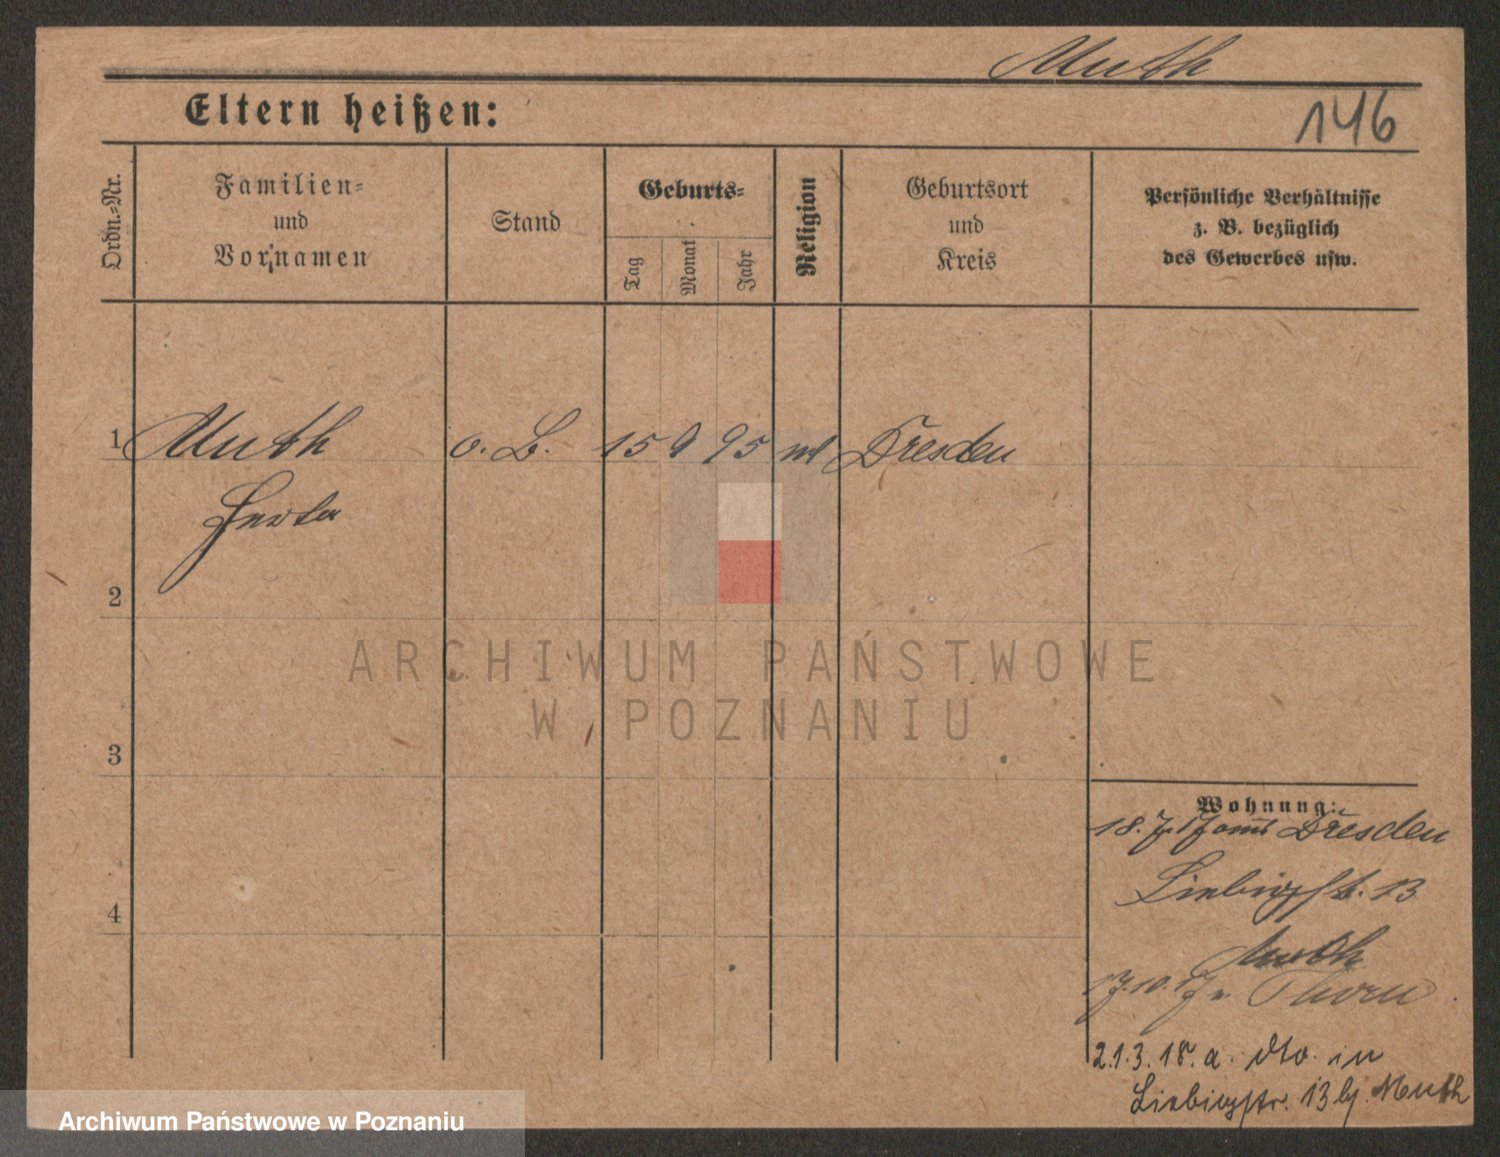 Muth
Eltern heißen:
146
Ordn.-Nr.
Familien-
und
Vornamen
Stand
Geburts-
Tag
Monat
Jahr
Religion
Geburtsort
und
Kreis
Persönliche Verhältnisse
z. B. bezüglich
des Gewerbes usw.
1 Muth o. B. 15 9 95 Dresden
Herta
2
3
4
Wohnung:
18. 7. 17 aus Dresden
Liebigstr. 13
Muth
17. 10. 17 n. Thorn
21. 3. 18. a. dto. in
Liebigstr. 13 bj. Muth
ARCHIWUM PAŃSTWOWE
W POZNANIU
Archiwum Państwowe w Poznaniu